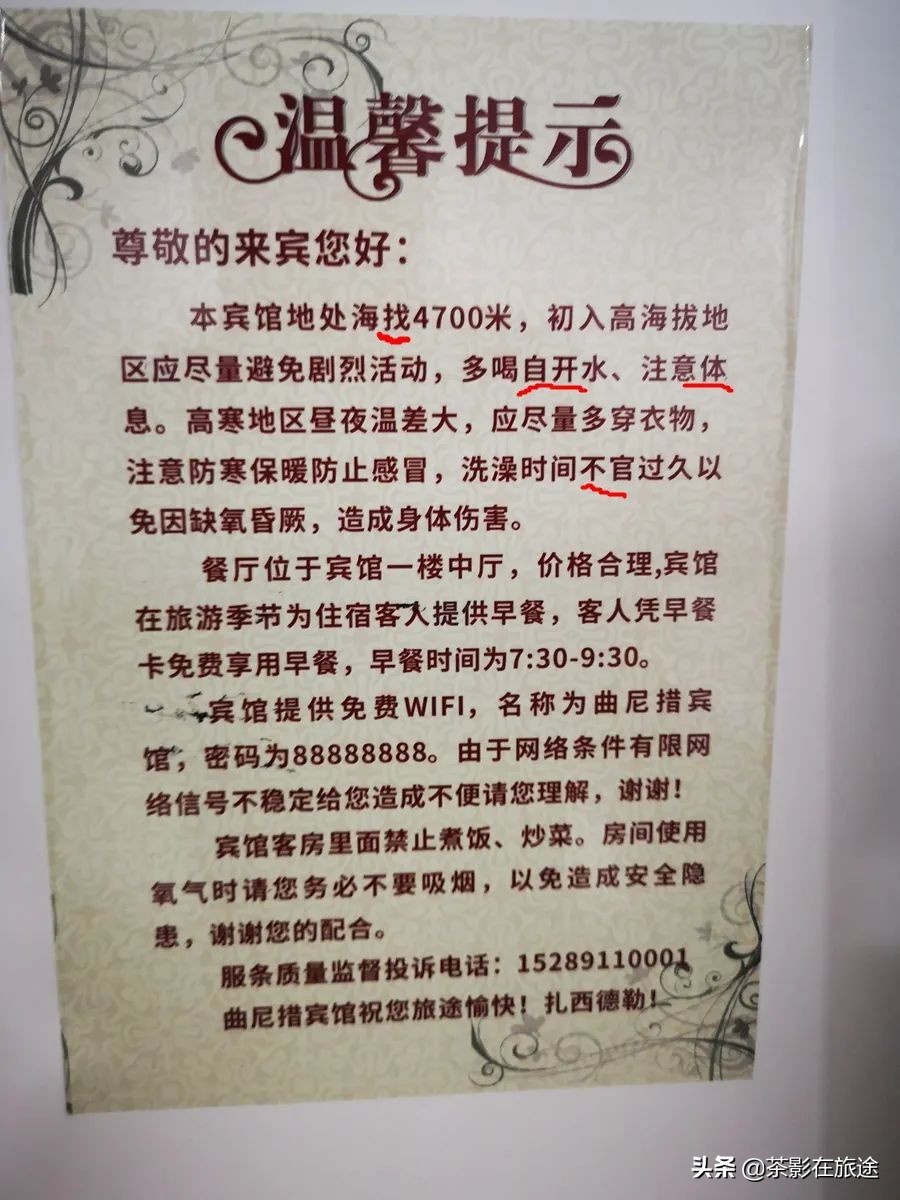 温馨提示
尊敬的来宾您好：
本宾馆地处海找4700米，初入高海拔地
区应尽量避免剧烈活动，多喝自开水、注意体
息。高寒地区昼夜温差大，应尽量多穿衣物，
注意防寒保暖防止感冒，洗澡时间不官过久以
免因缺氧昏厥，造成身体伤害。
餐厅位于宾馆一楼中厅，价格合理,宾馆
在旅游季节为住宿客人提供早餐，客人凭早餐
卡免费享用早餐，早餐时间为7:30-9:30。
宾馆提供免费WIFI，名称为曲尼措宾
馆，密码为88888888。由于网络条件有限网
络信号不稳定给您造成不便请您理解，谢谢！
宾馆客房里面禁止煮饭、炒菜。房间使用
氧气时请您务必不要吸烟，以免造成安全隐
患，谢谢您的配合。
服条质量监督投诉电话：15289110001
曲尼措宾馆祝您旅途愉快！扎西德勒！
头条 @茶影在旅途